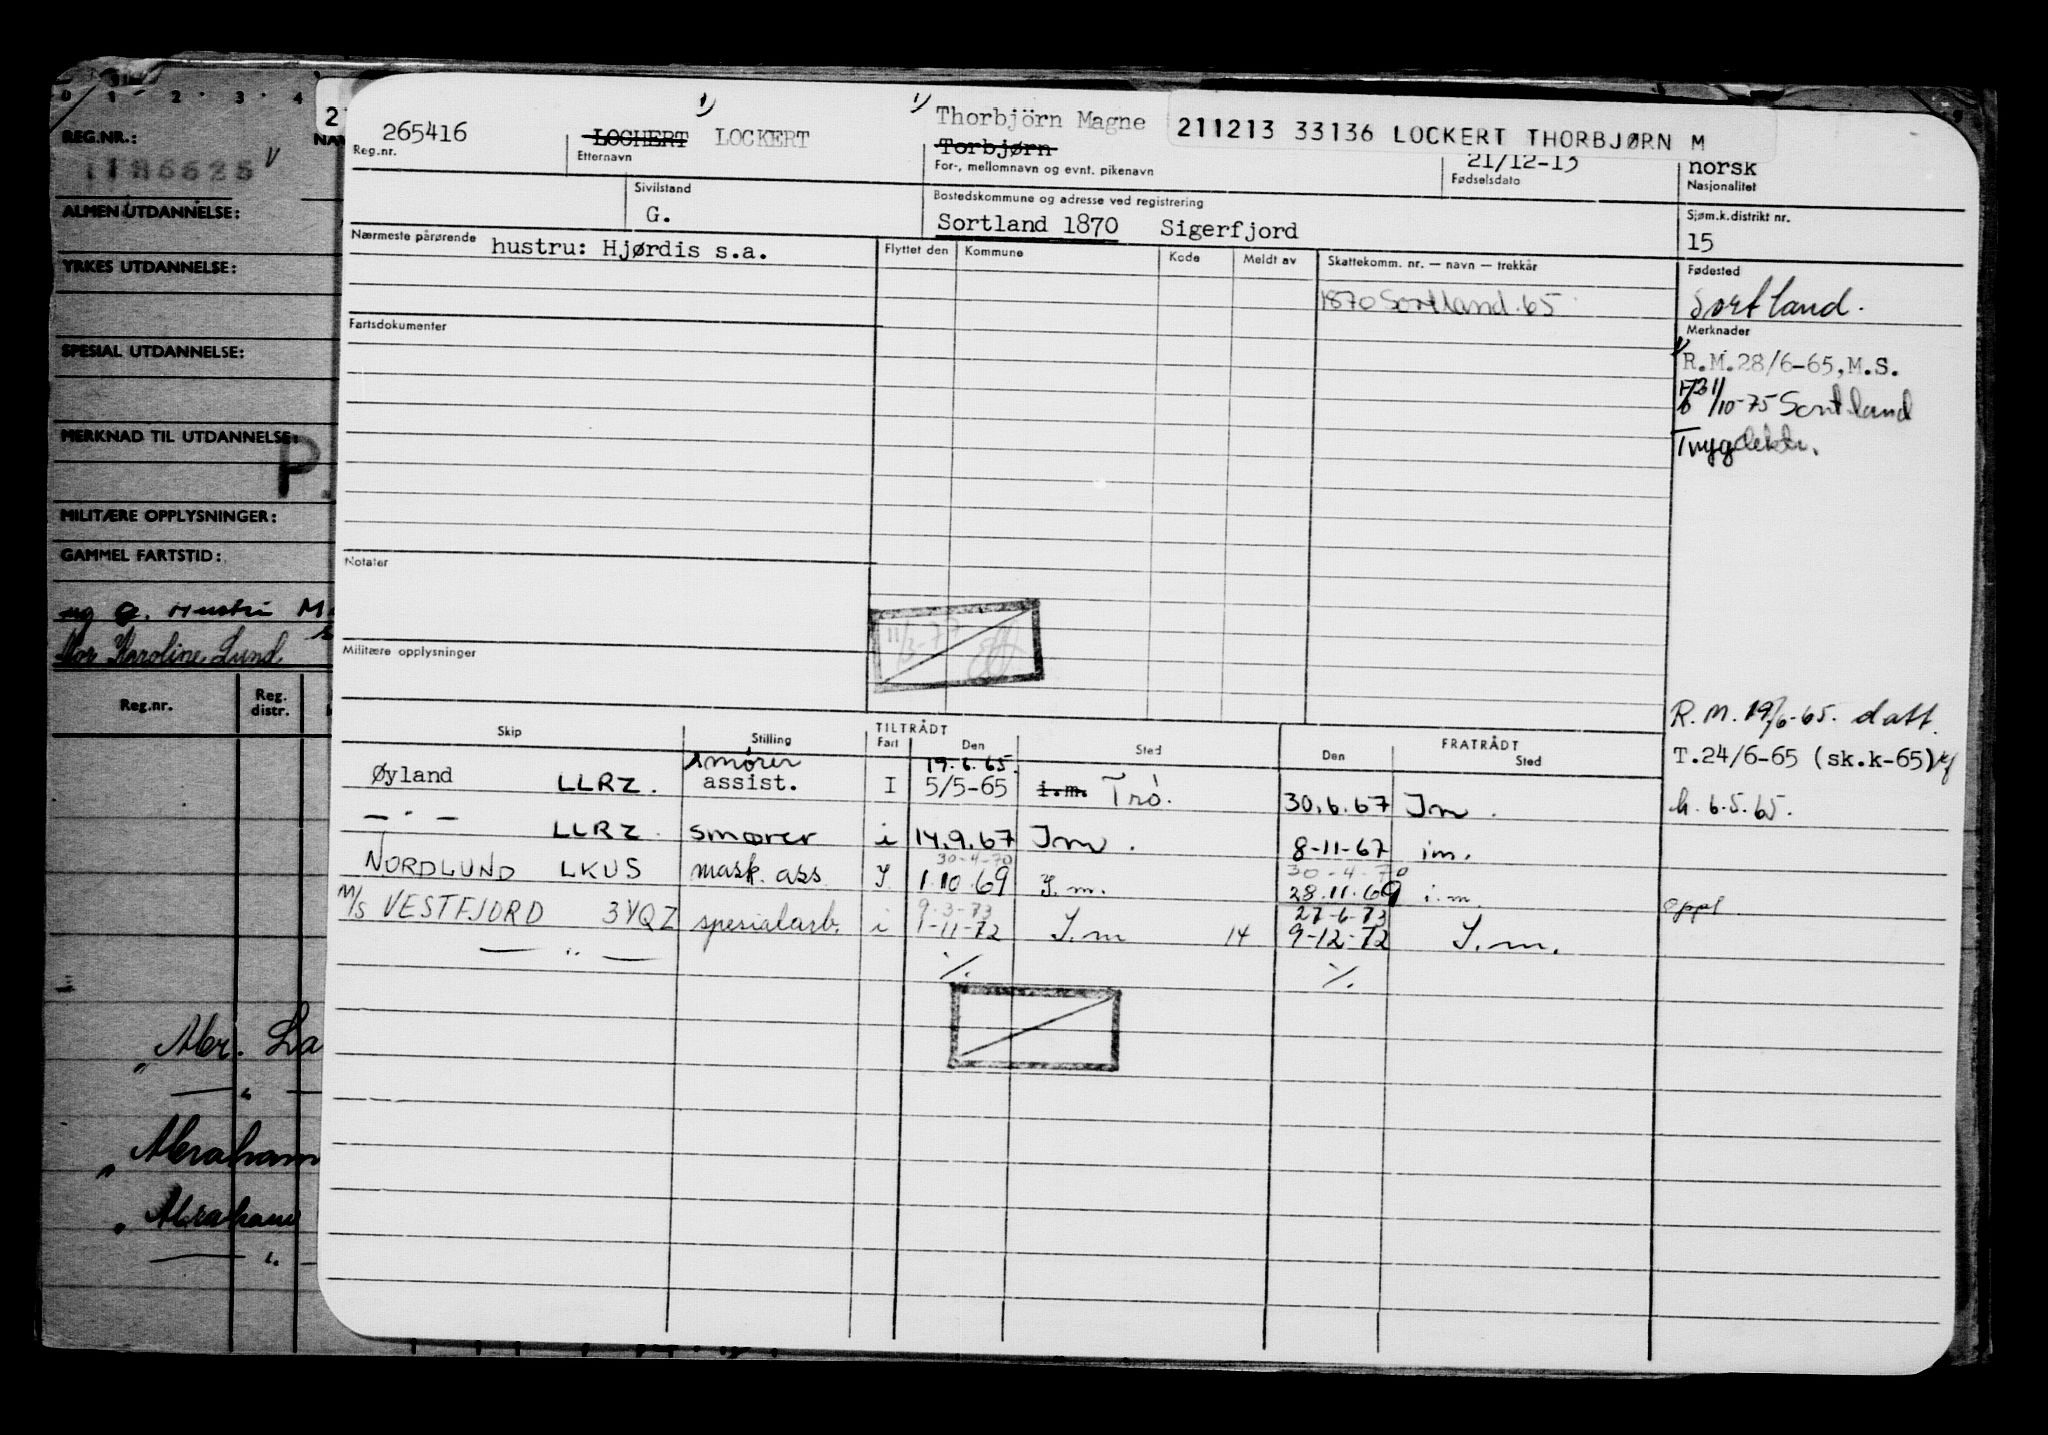 0 1 2 3 4
REG.NR.:
1186625 V
ALMEN UTDANNELSE:
YRKES UTDANNELSE:
SPESIAL UTDANNELSE:
MERKNAD TIL UTDANNELSE:
P.
MILITÆRE OPPLYSNINGER:
GAMMEL FARTSTID:
ug G. Hustru
Mor Karoline Lund
Reg.nr. Reg. distr.
" Abr. La
— " —
" Abraham
" Abraham
— " —
265416
Reg.nr.
1) LOCHERT LOCKERT
Etternavn
1) Thorbjörn Magne
Torbjørn
For-, mellomnavn og evnt. pikenavn
211213 33136 LOCKERT THORBJØRN M
21/12-13
Fødselsdato
norsk
Nasjonalitet
Sivilstand
G.
Bostedskommune og adresse ved registrering
Sortland 1870 Sigerfjord
Sjøm.k.distrikt nr.
15
Nærmeste pårørende hustru: Hjørdis s.a.
Flyttet den Kommune Kode Meldt av Skattekomm. nr. — navn — trekkår
1870 Sortland. 65
Fødested
Sortland.
Fartsdokumenter
Merknader
1) R.M.28/6-65,M.S.
1/10-75 Sortland
Trygdektr.
Notater
11/3-77
Militære opplysninger
R.M. 19/6-65. datt.
T.24/6-65 (sk.k-65)
h. 6.5.65.
Skip Stilling TILTRÅDT Fart Den Sted FRATRÅDT Den Sted
smører 19.6.65.
Øyland LLRZ. assist. I 5/5-65 i.m. Trò. 30.6.67 Im.
— " — LLRZ. smører i 14.9.67 Im. 8-11-67 im.
30-4-70 30-4-70
NORDLUND LKUS mask. ass. I 1.10.69 I.m. 28.11.69 i.m.
9-3-73 27-6-73
M/S VESTFJORD 3YQZ spesialarb. i 1-11-72 I.m 14 9-12-72 I.m. oppl.
— " — ./. ./.